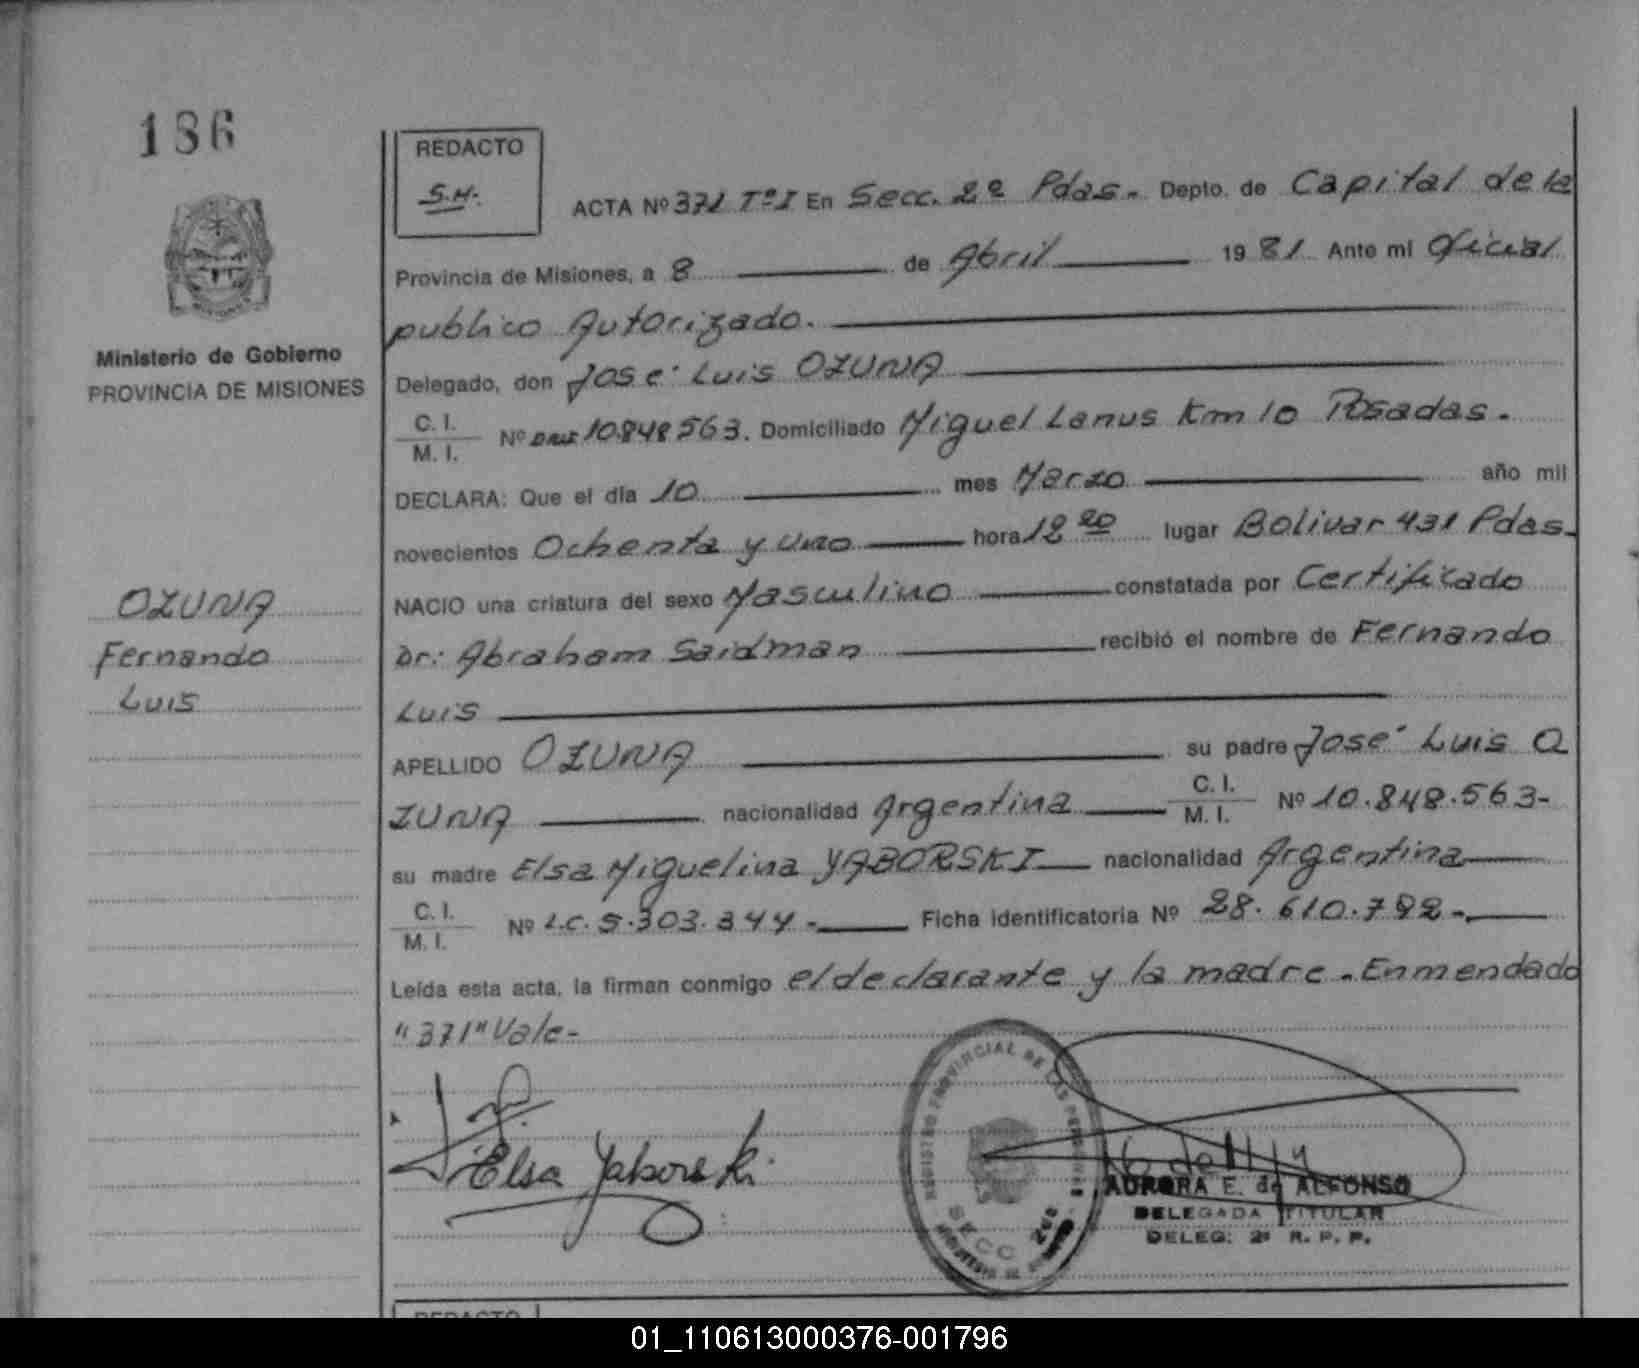 186
REDACTO
S.H.
ACTA Nº 371 Tº I En Secc. 2º Pdas.- Depto. de Capital de la
Provincia de Misiones, a 8 de Abril 1981 Ante mi Oficial
publico Autorizado.
Delegado, don José Luis OZUNA
C. I.
M. I.
Nº DNI 10.848563. Domiciliado Miguel Lanus Km 10 Posadas.
DECLARA: Que el día 10 mes Marzo año mil
novecientos Ochenta y uno hora 12 20 lugar Bolivar 431 Pdas.
NACIO una criatura del sexo Masculino constatada por Certificado
Dr: Abraham Saidman recibió el nombre de Fernando
Luis
APELLIDO OZUNA su padre José Luis O
ZUNA nacionalidad Argentina C. I. M. I. Nº 10.848.563-
su madre Elsa Miguelina YABORSKI nacionalidad Argentina
C. I.
M. I.
Nº L.C. 5.303.344.- Ficha identificatoria Nº 28.610.792-
Leída esta acta, la firman conmigo el declarante y la madre. Enmendado
"371" Vale-
Ministerio de Gobierno
PROVINCIA DE MISIONES
OZUNA
Fernando
Luis
Elsa Yaborski
REGISTRO PROVINCIAL DE LAS PERSONAS
SECC
AURORA E. de ALFONSO
DELEGADA TITULAR
DELEG: 2ª R. P. P.
REDACTO
01_110613000376-001796